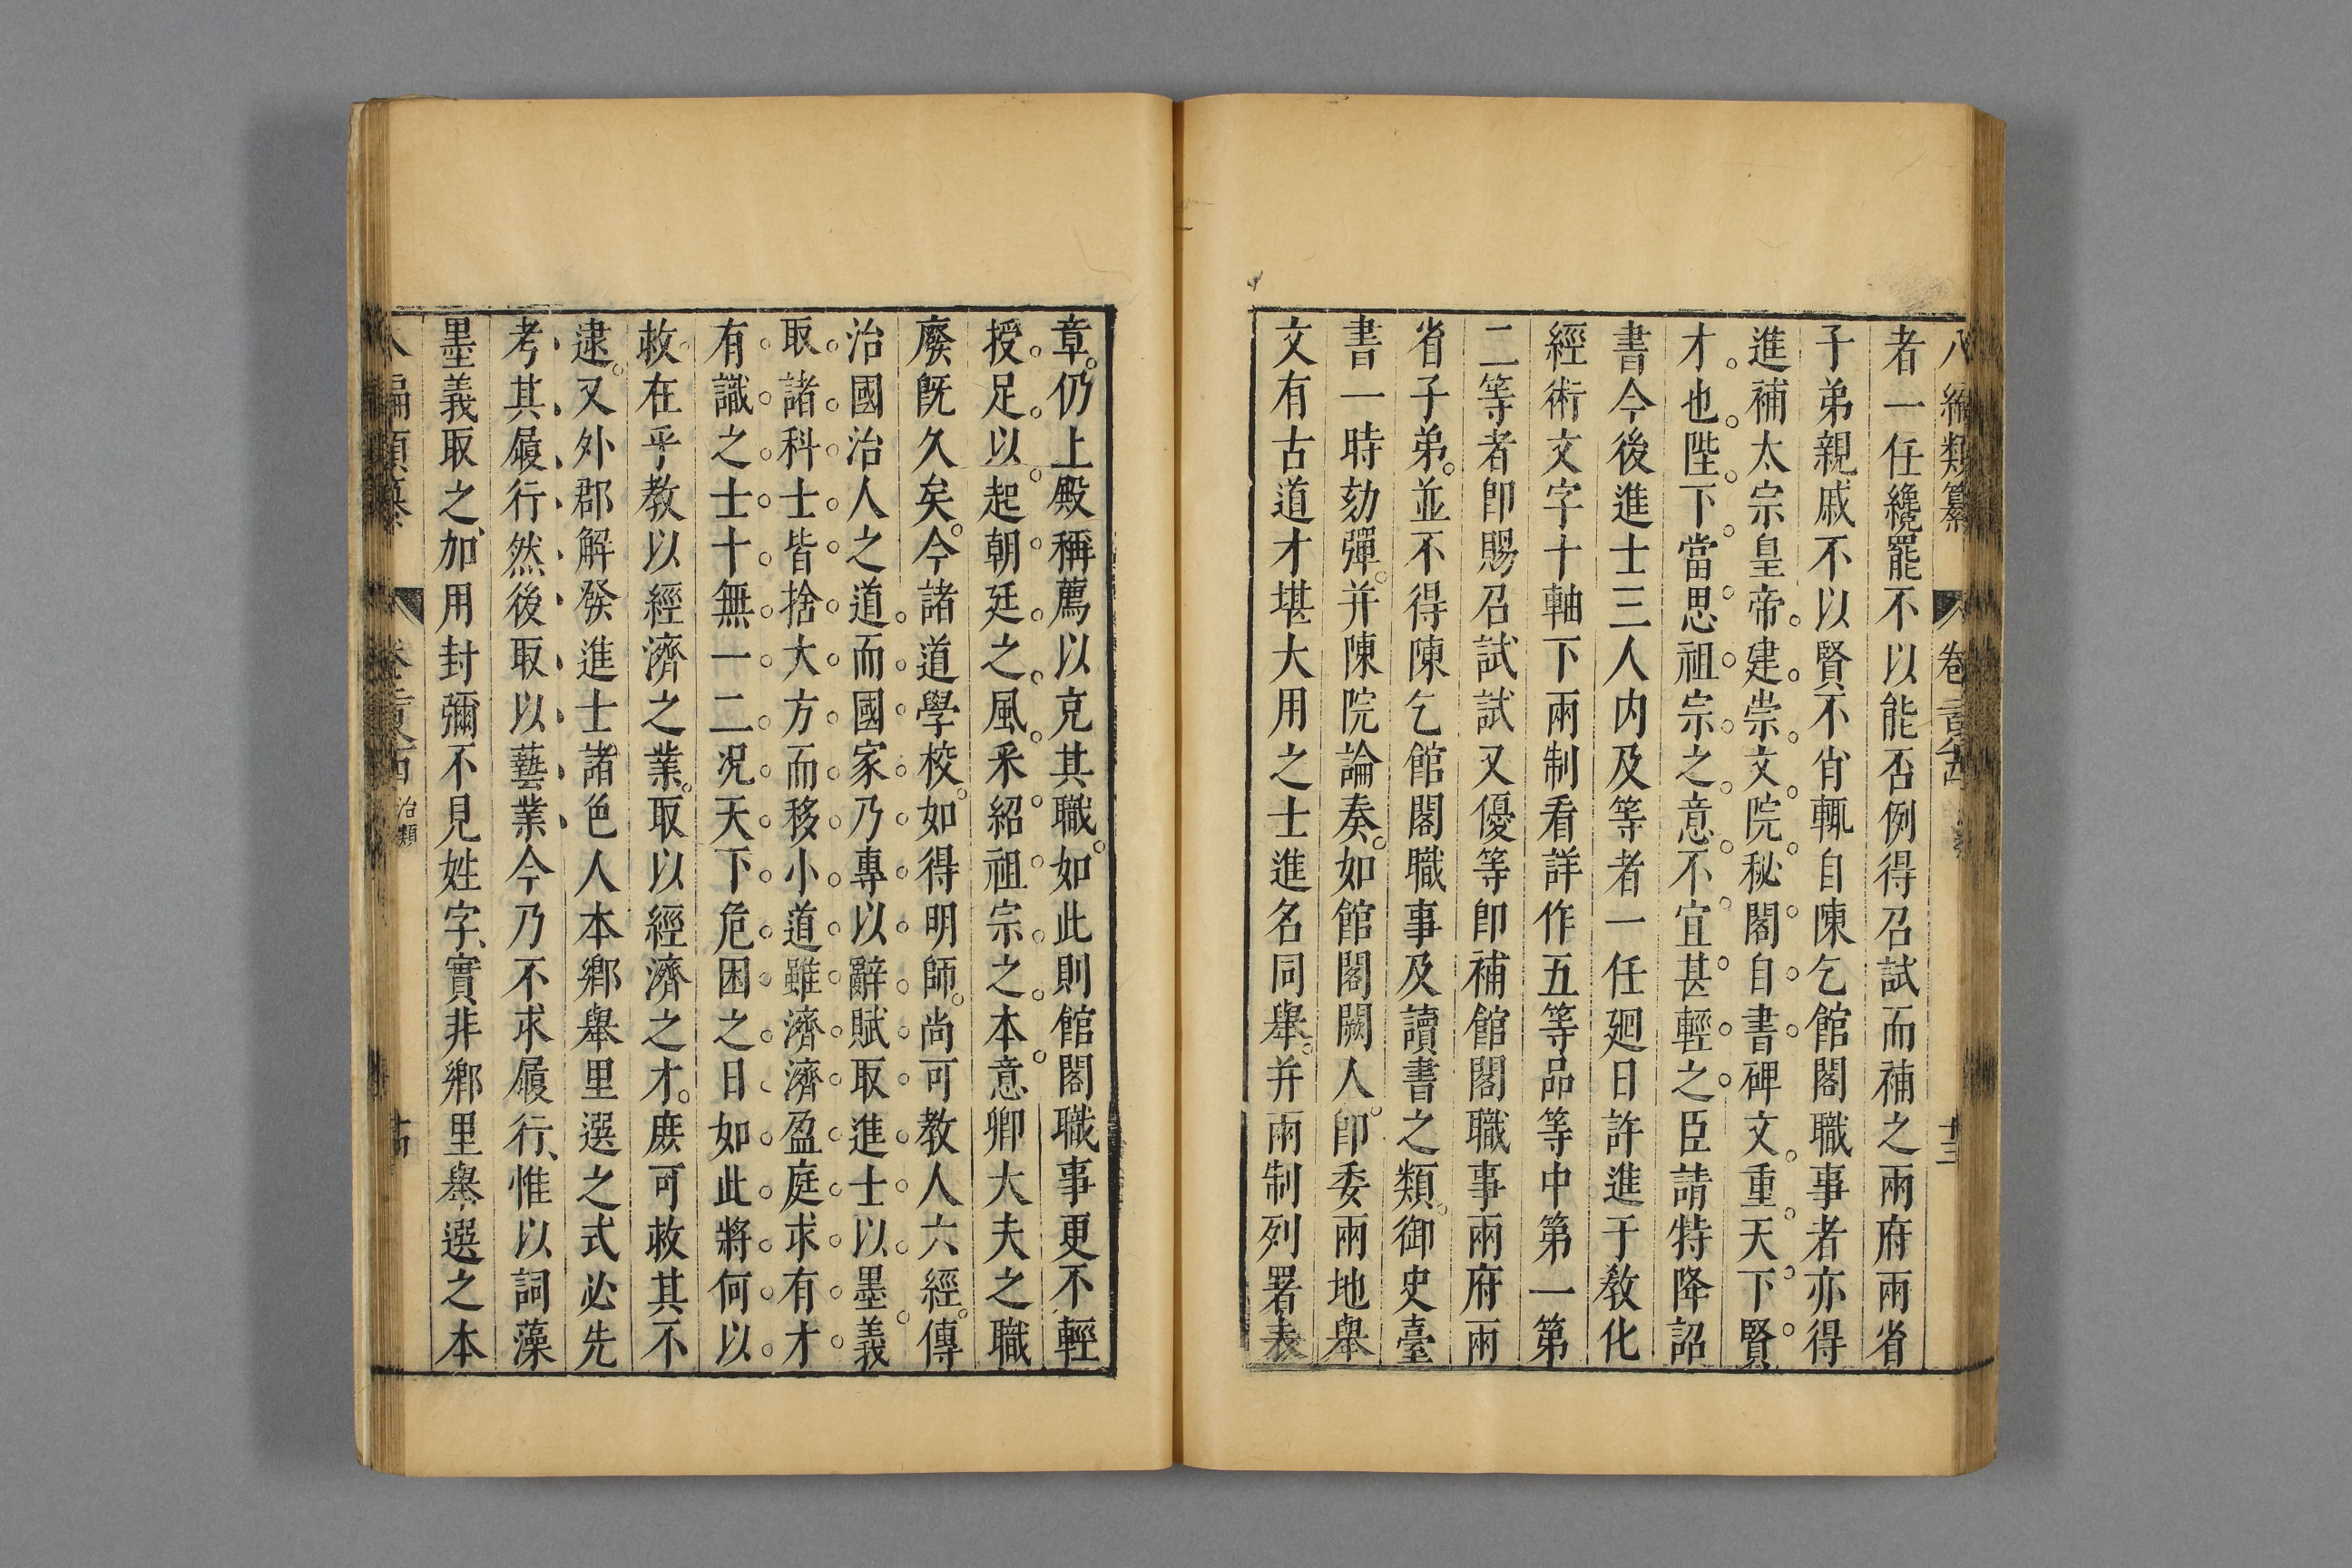 八編類纂 卷 十三
者一任纔罷不以能否例得召試而補之兩府兩省
子弟親戚不以賢不肖輒自陳乞館閣職事者亦得
進補太宗皇帝建崇文院秘閣自書碑文重天下賢
才也陛下當思祖宗之意不宜甚輕之臣請特降詔
書今後進士三人内及等者一任廻日許進于教化
經術文字十軸下兩制看詳作五等品等中第一第
二等者卽賜召試試又優等卽補館閣職事兩府兩
省子弟並不得陳乞館閣職事及讀書之類御史臺
書一時劾彈并陳院論奏如館閣闕人卽委兩地舉
文有古道才堪大用之士進名同舉并兩制列署表
章仍上殿稱薦以克其職如此則館閣職事更不輕
授足以起朝廷之風采紹祖宗之本意卿大夫之職
廢旣久矣今諸道學校如得明師尚可教人六經傳
治國治人之道而國家乃專以辭賦取進士以墨義
取諸科士皆捨大方而移小道雖濟濟盈庭求有才
有識之士十無一二況天下危困之日如此將何以
救在乎教以經濟之業取以經濟之才庶可救其不
逮又外郡解發進士諸色人本鄉舉里選之式必先
考其履行然後取以藝業今乃不求履行惟以詞藻
墨義取之加用封彌不見姓字實非鄉里舉選之本
治類